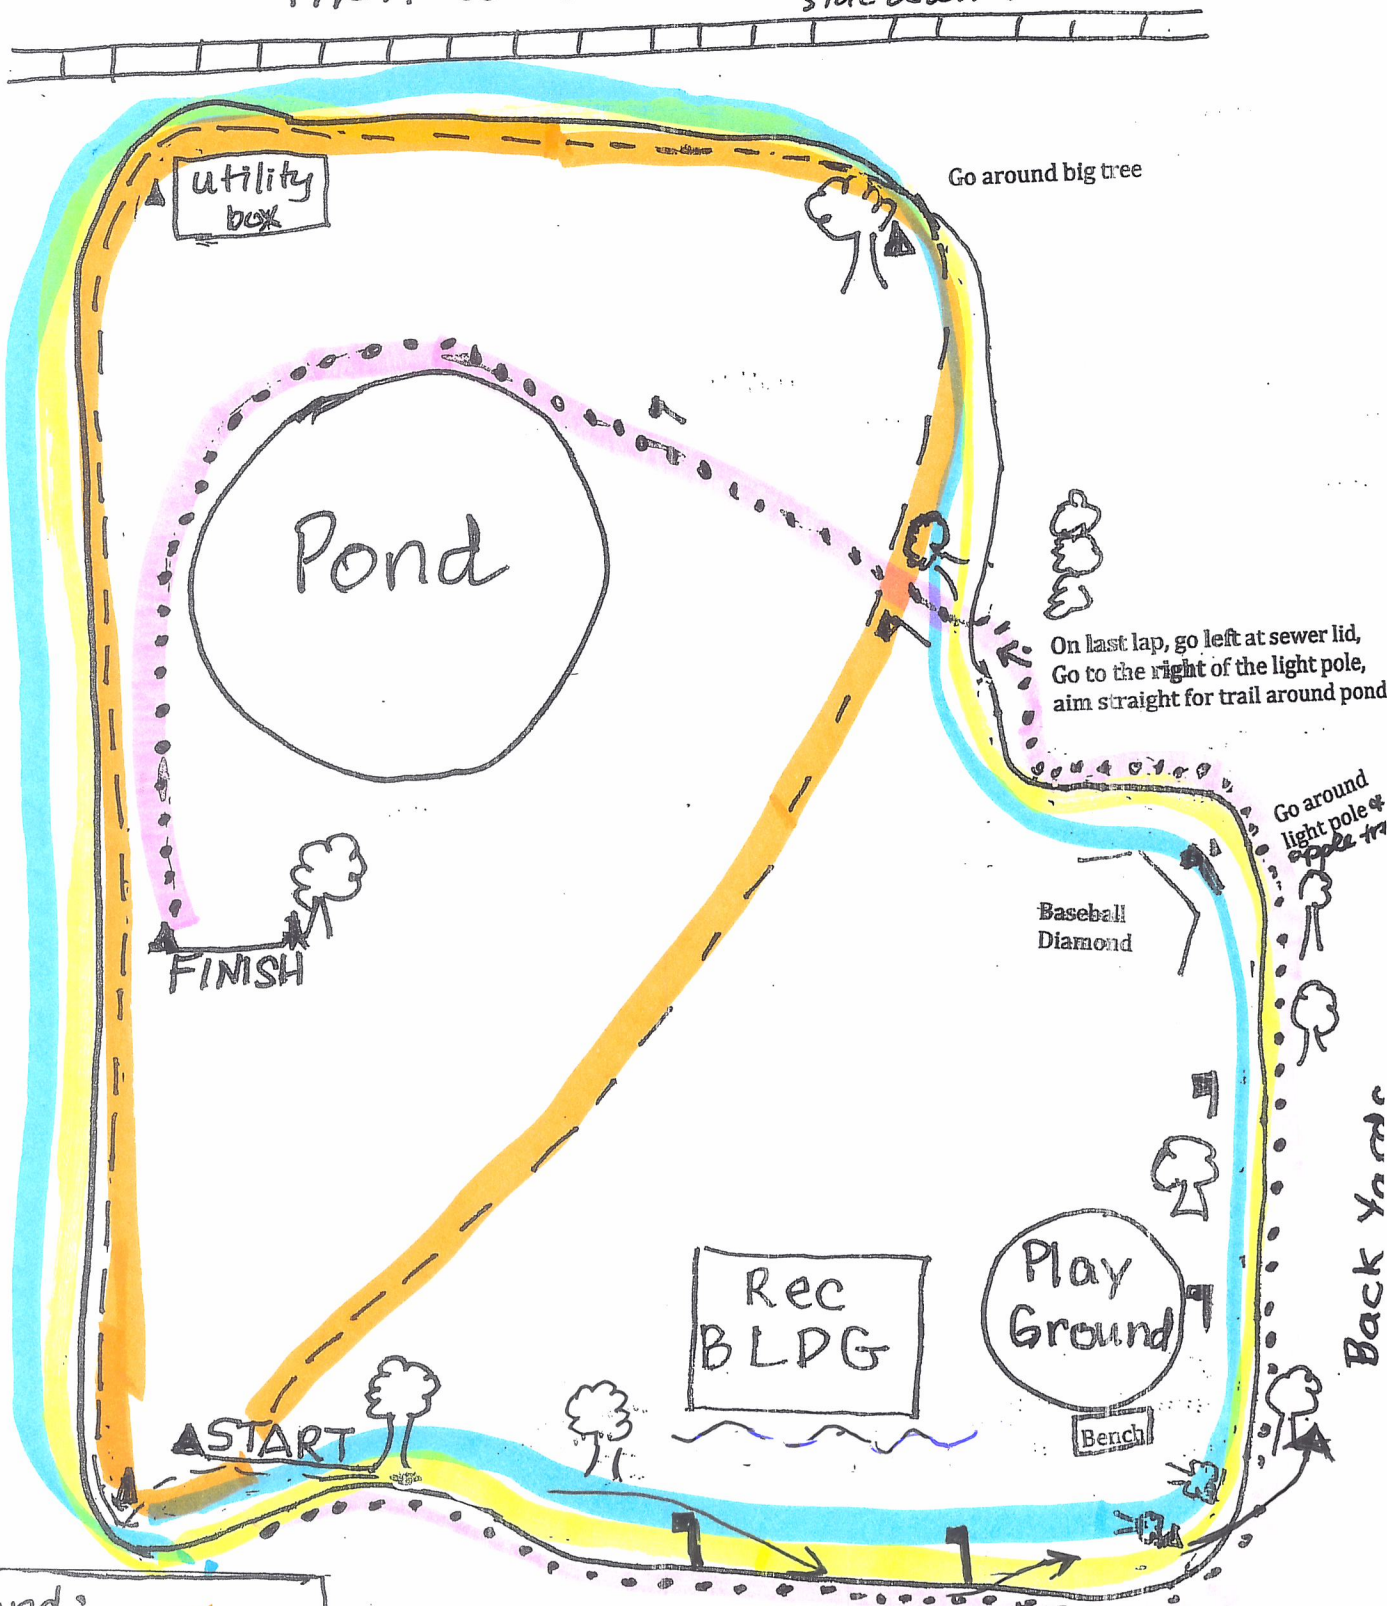 utility
box
Go around big tree
Pond
On last lap, go left at sewer lid,
Go to the right of the light pole,
aim straight for trail around pond
Go around
light pole &
apple
Baseball
Diamond
FINISH
Back
Play
Ground
Rec
BLDG
START
Bench